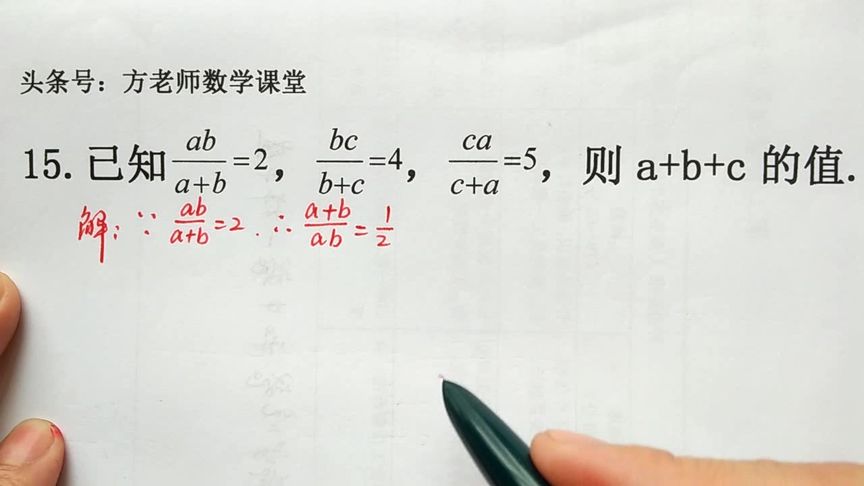 头条号：方老师数学课堂
15. 已知 ab/(a+b)=2， bc/(b+c)=4， ca/(c+a)=5， 则 a+b+c 的值.
解：∵ ab/(a+b)=2. ∴ (a+b)/(ab)=1/2